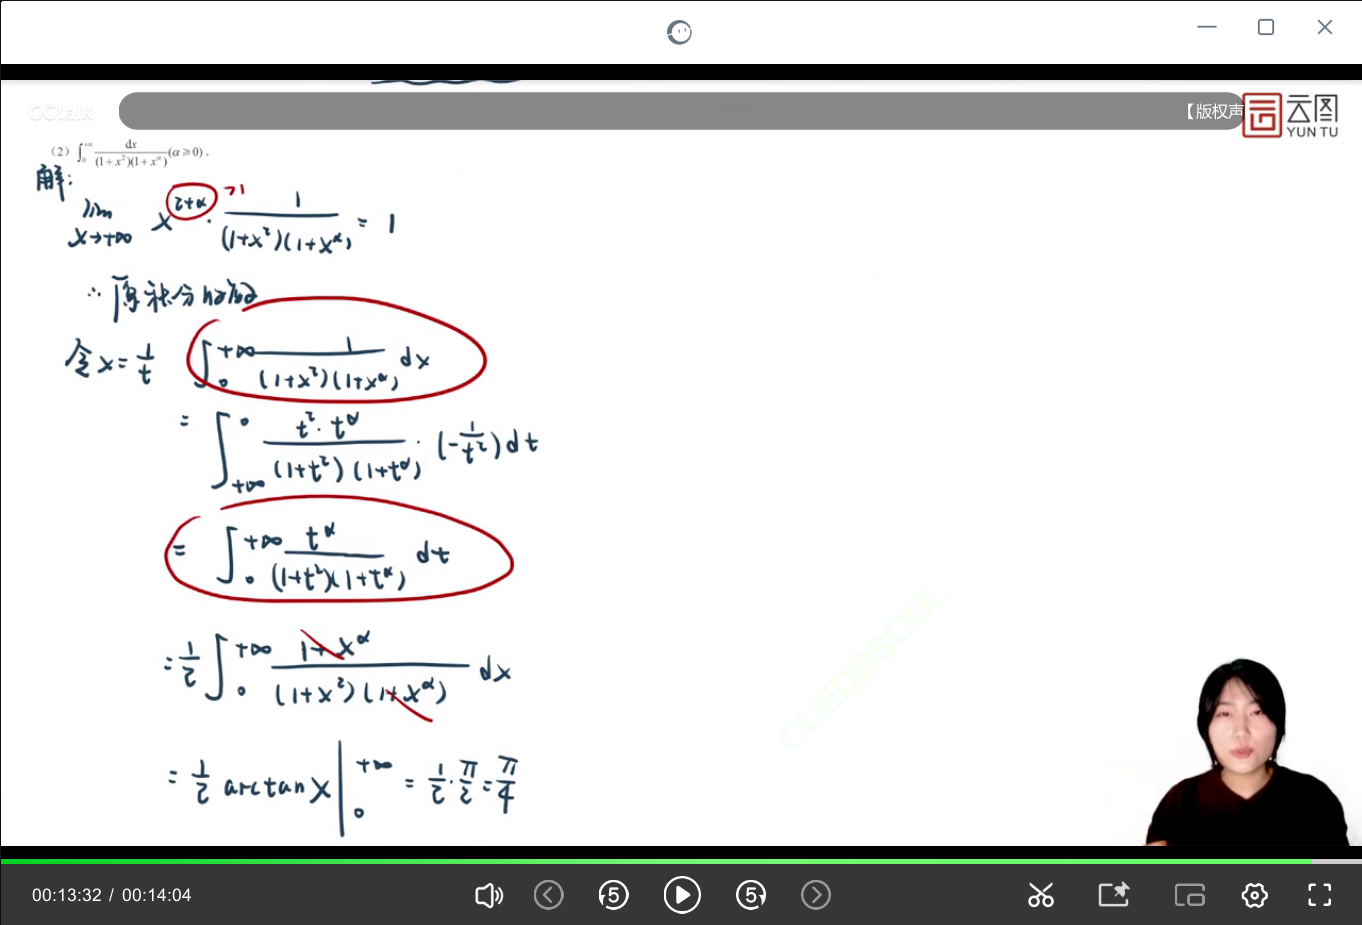 CCtalk
【版权声
云图
YUN TU
(2) ∫₀^{+∞} dx/((1+x²)(1+x^α)) (α≥0).
解:
lim_{x→+∞} x^{2+α} · 1/((1+x²)(1+x^α)) = 1
>1
∴ 原积分收敛
令x=1/t ∫₀^{+∞} 1/((1+x²)(1+x^α)) dx
= ∫_{+∞}^0 t²·t^α/((1+t²)(1+t^α)) · (-1/t²)dt
= ∫₀^{+∞} t^α/((1+t²)(1+t^α)) dt
= 1/2 ∫₀^{+∞} (1+x^α)/((1+x²)(1+x^α)) dx
= 1/2 arctan x |₀^{+∞} = 1/2 · π/2 = π/4
CUEDDSOUL
00:13:32 / 00:14:04
5
5